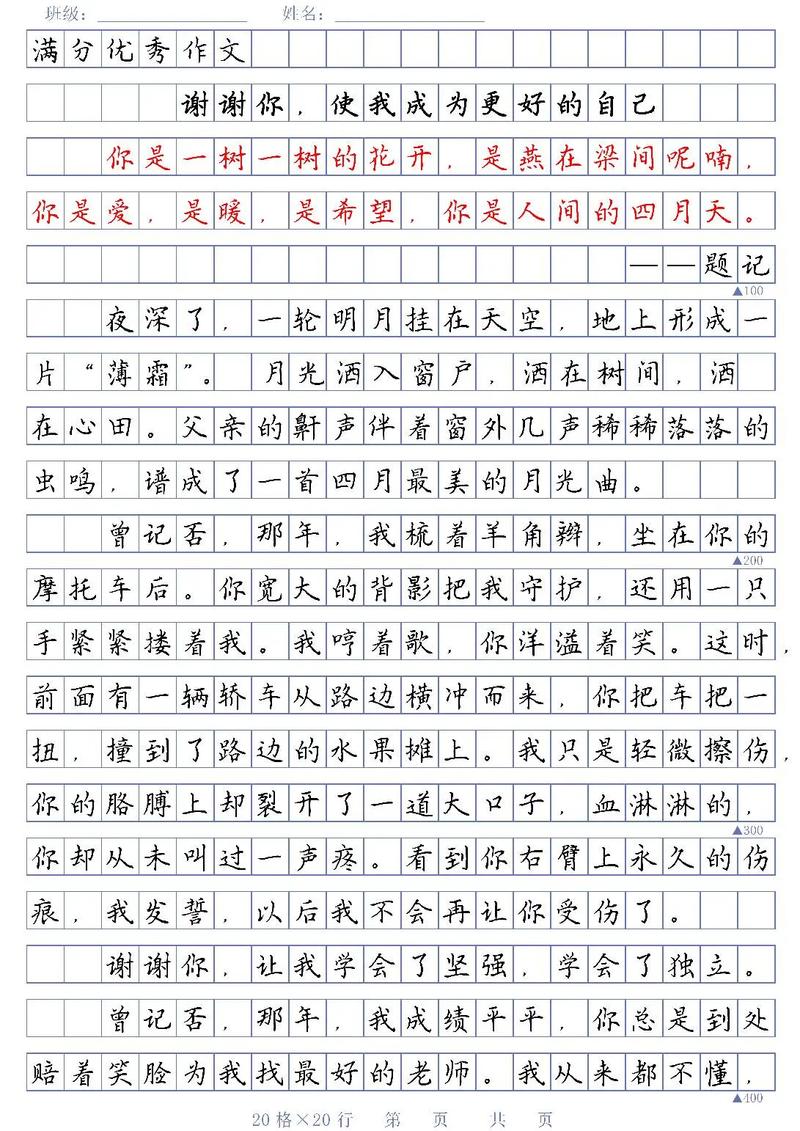 班级：____________ 姓名：____________
满分优秀作文
谢谢你，使我成为更好的自己
你是一树一树的花开，是燕在梁间呢喃，
你是爱，是暖，是希望，你是人间的四月天。
——题记
▲100
夜深了，一轮明月挂在天空，地上形成一
片“薄霜”。 月光洒入窗户，洒在树间，洒
在心田。父亲的鼾声伴着窗外几声稀稀落落的
虫鸣，谱成了一首四月最美的月光曲。
曾记否，那年，我梳着羊角辫，坐在你的
▲200
摩托车后。你宽大的背影把我守护，还用一只
手紧紧搂着我。我哼着歌，你洋溢着笑。这时，
前面有一辆轿车从路边横冲而来，你把车把一
扭，撞到了路边的水果摊上。我只是轻微擦伤，
你的胳膊上却裂开了一道大口子，血淋淋的，
▲300
你却从未叫过一声疼。看到你右臂上永久的伤
痕，我发誓，以后我不会再让你受伤了。
谢谢你，让我学会了坚强，学会了独立。
曾记否，那年，我成绩平平，你总是到处
赔着笑脸为我找最好的老师。我从来都不懂，
▲400
20格×20行 第 页 共 页